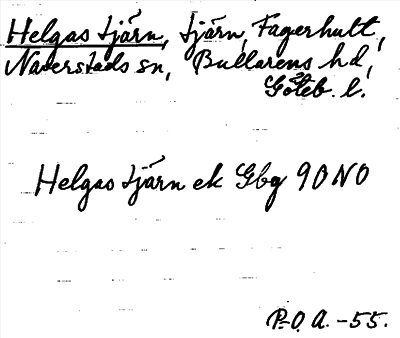 Helgas tjärn, Tjärn, Fagerhult,
Naverstads sn, Bullarens hd,
Göteb. l.
Helgas tjärn ek Gbg 90 NO
P-O. A. -55.